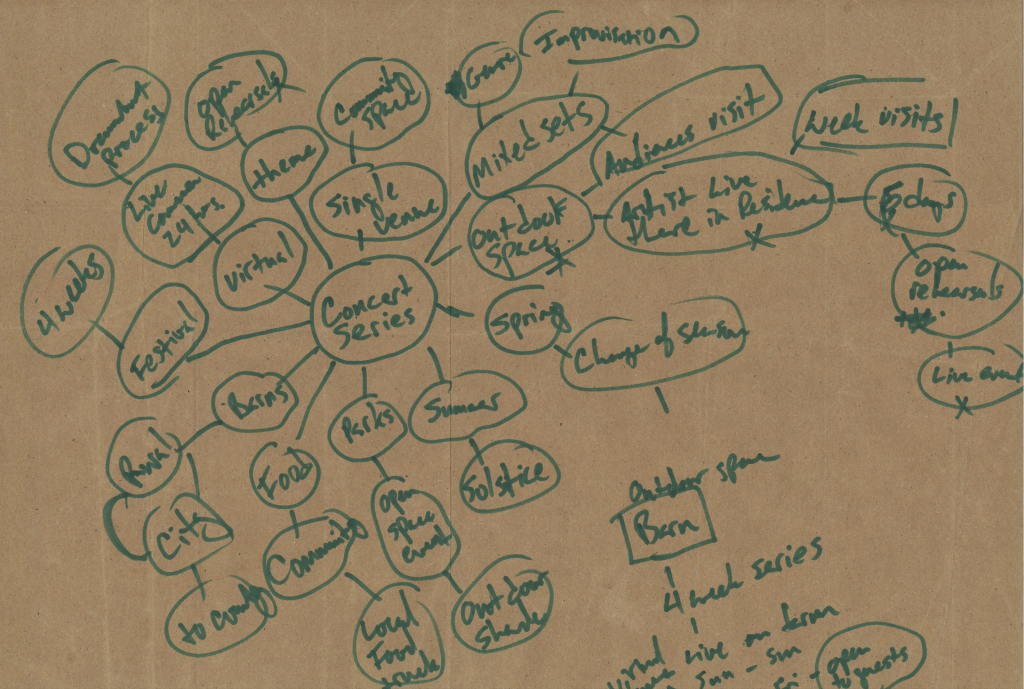 Improvisation
Genre
Mixed sets
Audiences visit
week visits
Community
Space
Open
Rehearsals
Document
process
theme
Single
venue
Live
Camera
24 hrs
Virtual
Outdoor
Space
Artist Live
there in Residence
5 days
open
rehearsals
Live event
4 weeks
Festival
Concert
Series
Spring
Change of season
Barns
Parks
Summer
Rural
City
Food
Solstice
open
space
event
to County
Community
Local
Food
Outdoor
Outdoor space
Barn
4 week series
Live on
Sun - Sun
open
to guests